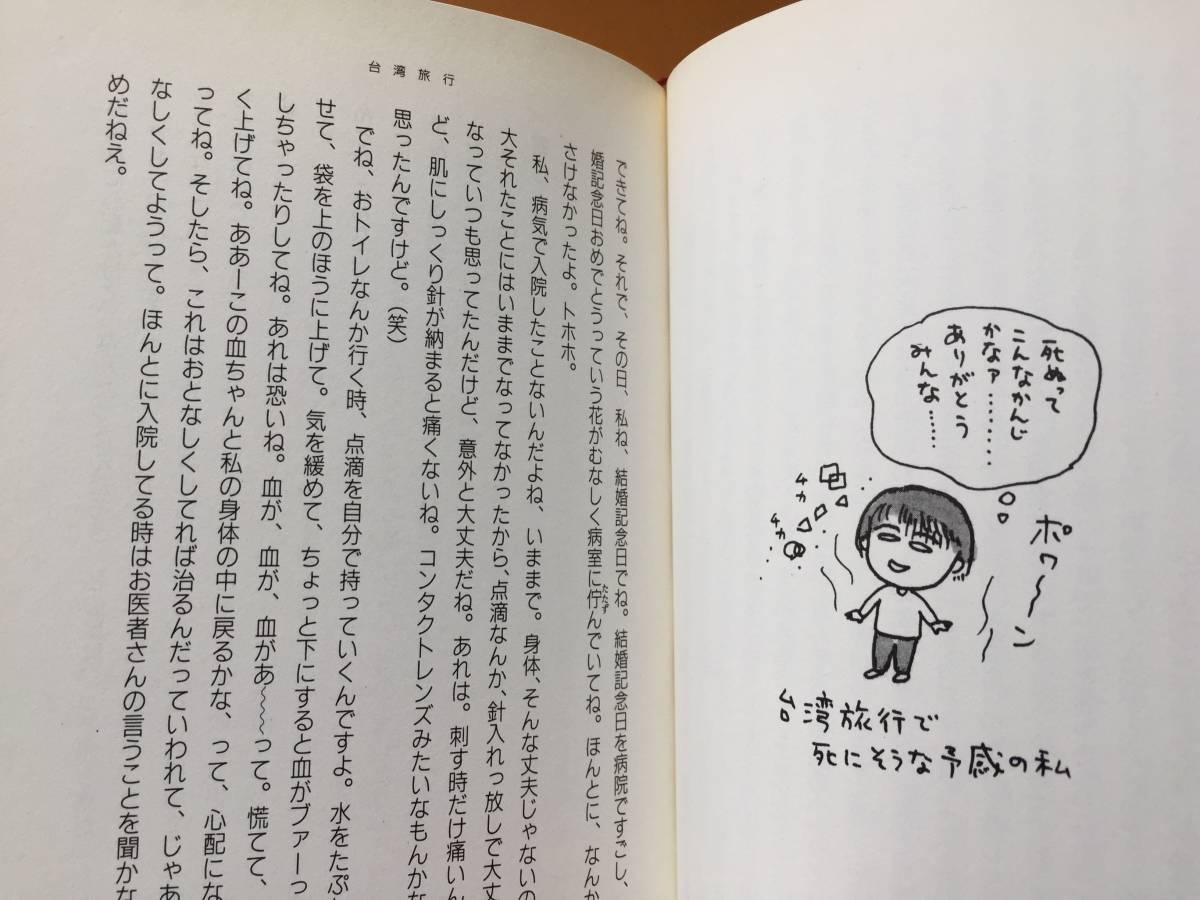 死ぬって
こんなかんじ
かなァ………
ありがとう
みんな……
ポワ〜〜ン
チカ
チカ
台湾旅行で
死にそうな予感の私
台湾旅行
できてね。それで、その日、私ね、結婚記念日でね。結婚記念日を病院ですごし、
婚記念日おめでとうっていう花がむなしく病室に佇んでいてね。ほんとに、なんか
たたず
さけなかったよ。トホホ。
私、病気で入院したことないんだよね、いままで。身体、そんな丈夫じゃないの
大それたことにはいままでなってなかったから、点滴なんか、針入れっ放しで大丈
なっていつも思ってたんだけど、意外と大丈夫だね。あれは。刺す時だけ痛いん
ど、肌にしっくり針が納まると痛くないね。コンタクトレンズみたいなもんかな
思ったんですけど。(笑)
でね、おトイレなんか行く時、点滴を自分で持っていくんですよ。水をたぷ
せて、袋を上のほうに上げて。気を緩めて、ちょっと下にすると血がブァーっ
しちゃったりしてね。あれは恐いね。血が、血が、血があ〜〜〜って。慌てて、
く上げてね。ああーこの血ちゃんと私の身体の中に戻るかな、って、心配にな
ってね。そしたら、これはおとなしくしてれば治るんだっていわれて、じゃあ
なしくしてようって。ほんとに入院してる時はお医者さんの言うことを聞かな
めだねえ。